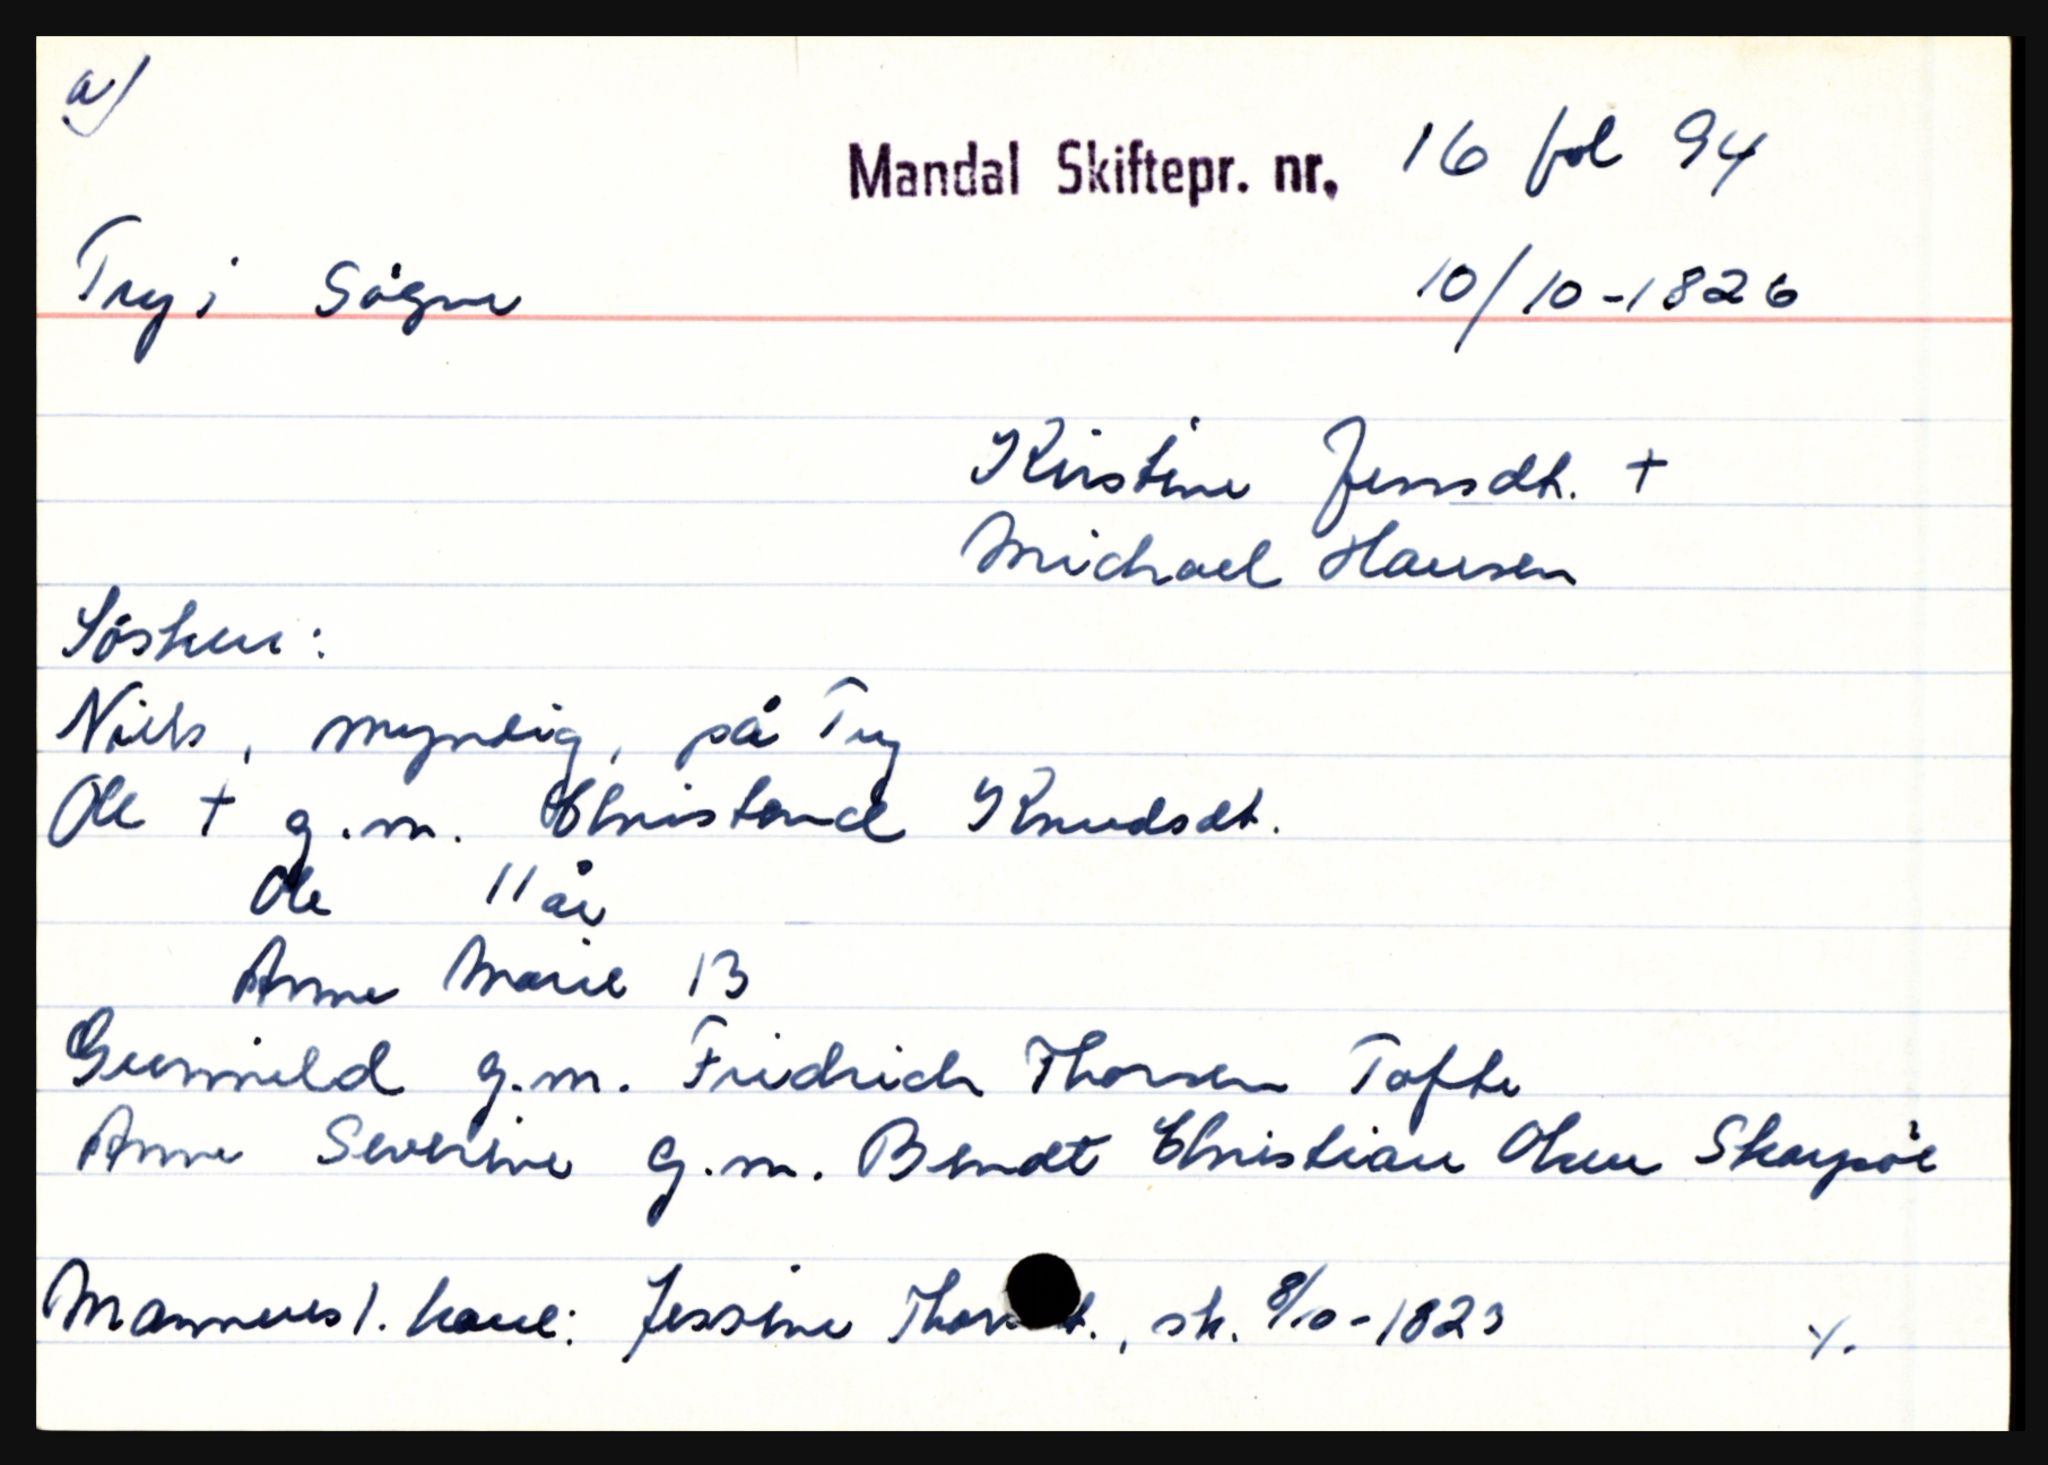 a)
Mandal Skiftepr. nr. 16 fol 94
Try i Søgne 10/10-1826
Kirstine Jensdt. +
Michael Hansen
Søsken:
Niels, myndig, på Try
Ole + g.m. Christence Knudsdt.
Ole 11 år
Anne Marie 13
Gunnild g.m. Fridrich Thorsen Tofte
Anne Severine g.m. Bendt Christian Olsen Skarpøe
Mannens 1. kone: Jessine sk. 8/10-1823 ·/.